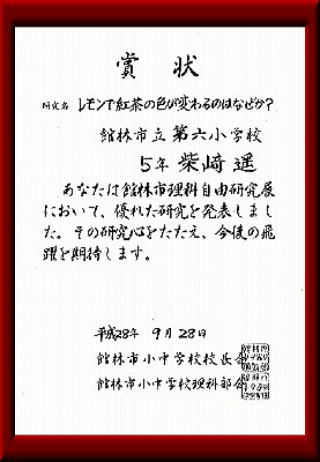 賞状
研究名 レモンで紅茶の色が変わるのはなぜか?
館林市立第六小学校
5年 柴崎遥
あなたは館林市理科自由研究展
において、優れた研究を発表しまし
た。その研究心をたたえ、今後の飛
躍を期待します。
平成28年 9月28日
館林市小中学校校長会
館林市小中学校理科部会